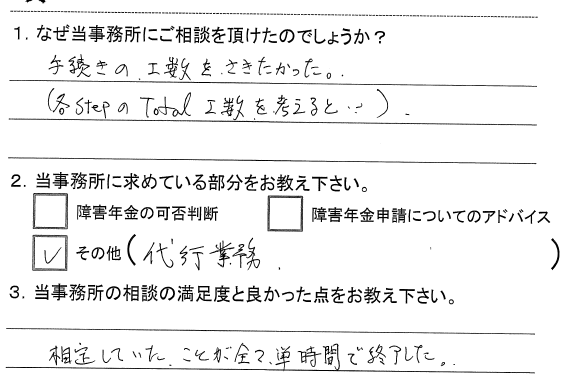 1. なぜ当事務所にご相談を頂けたのでしょうか？
手続きの、工数を、さきたかった。
(各stepの Total 工数を考えると…)。
2. 当事務所に求めている部分をお教え下さい。
障害年金の可否判断 障害年金申請についてのアドバイス
✓ その他(代行業務.)
3. 当事務所の相談の満足度と良かった点をお教え下さい。
相定していた、ことが全て、単時間で終了した。